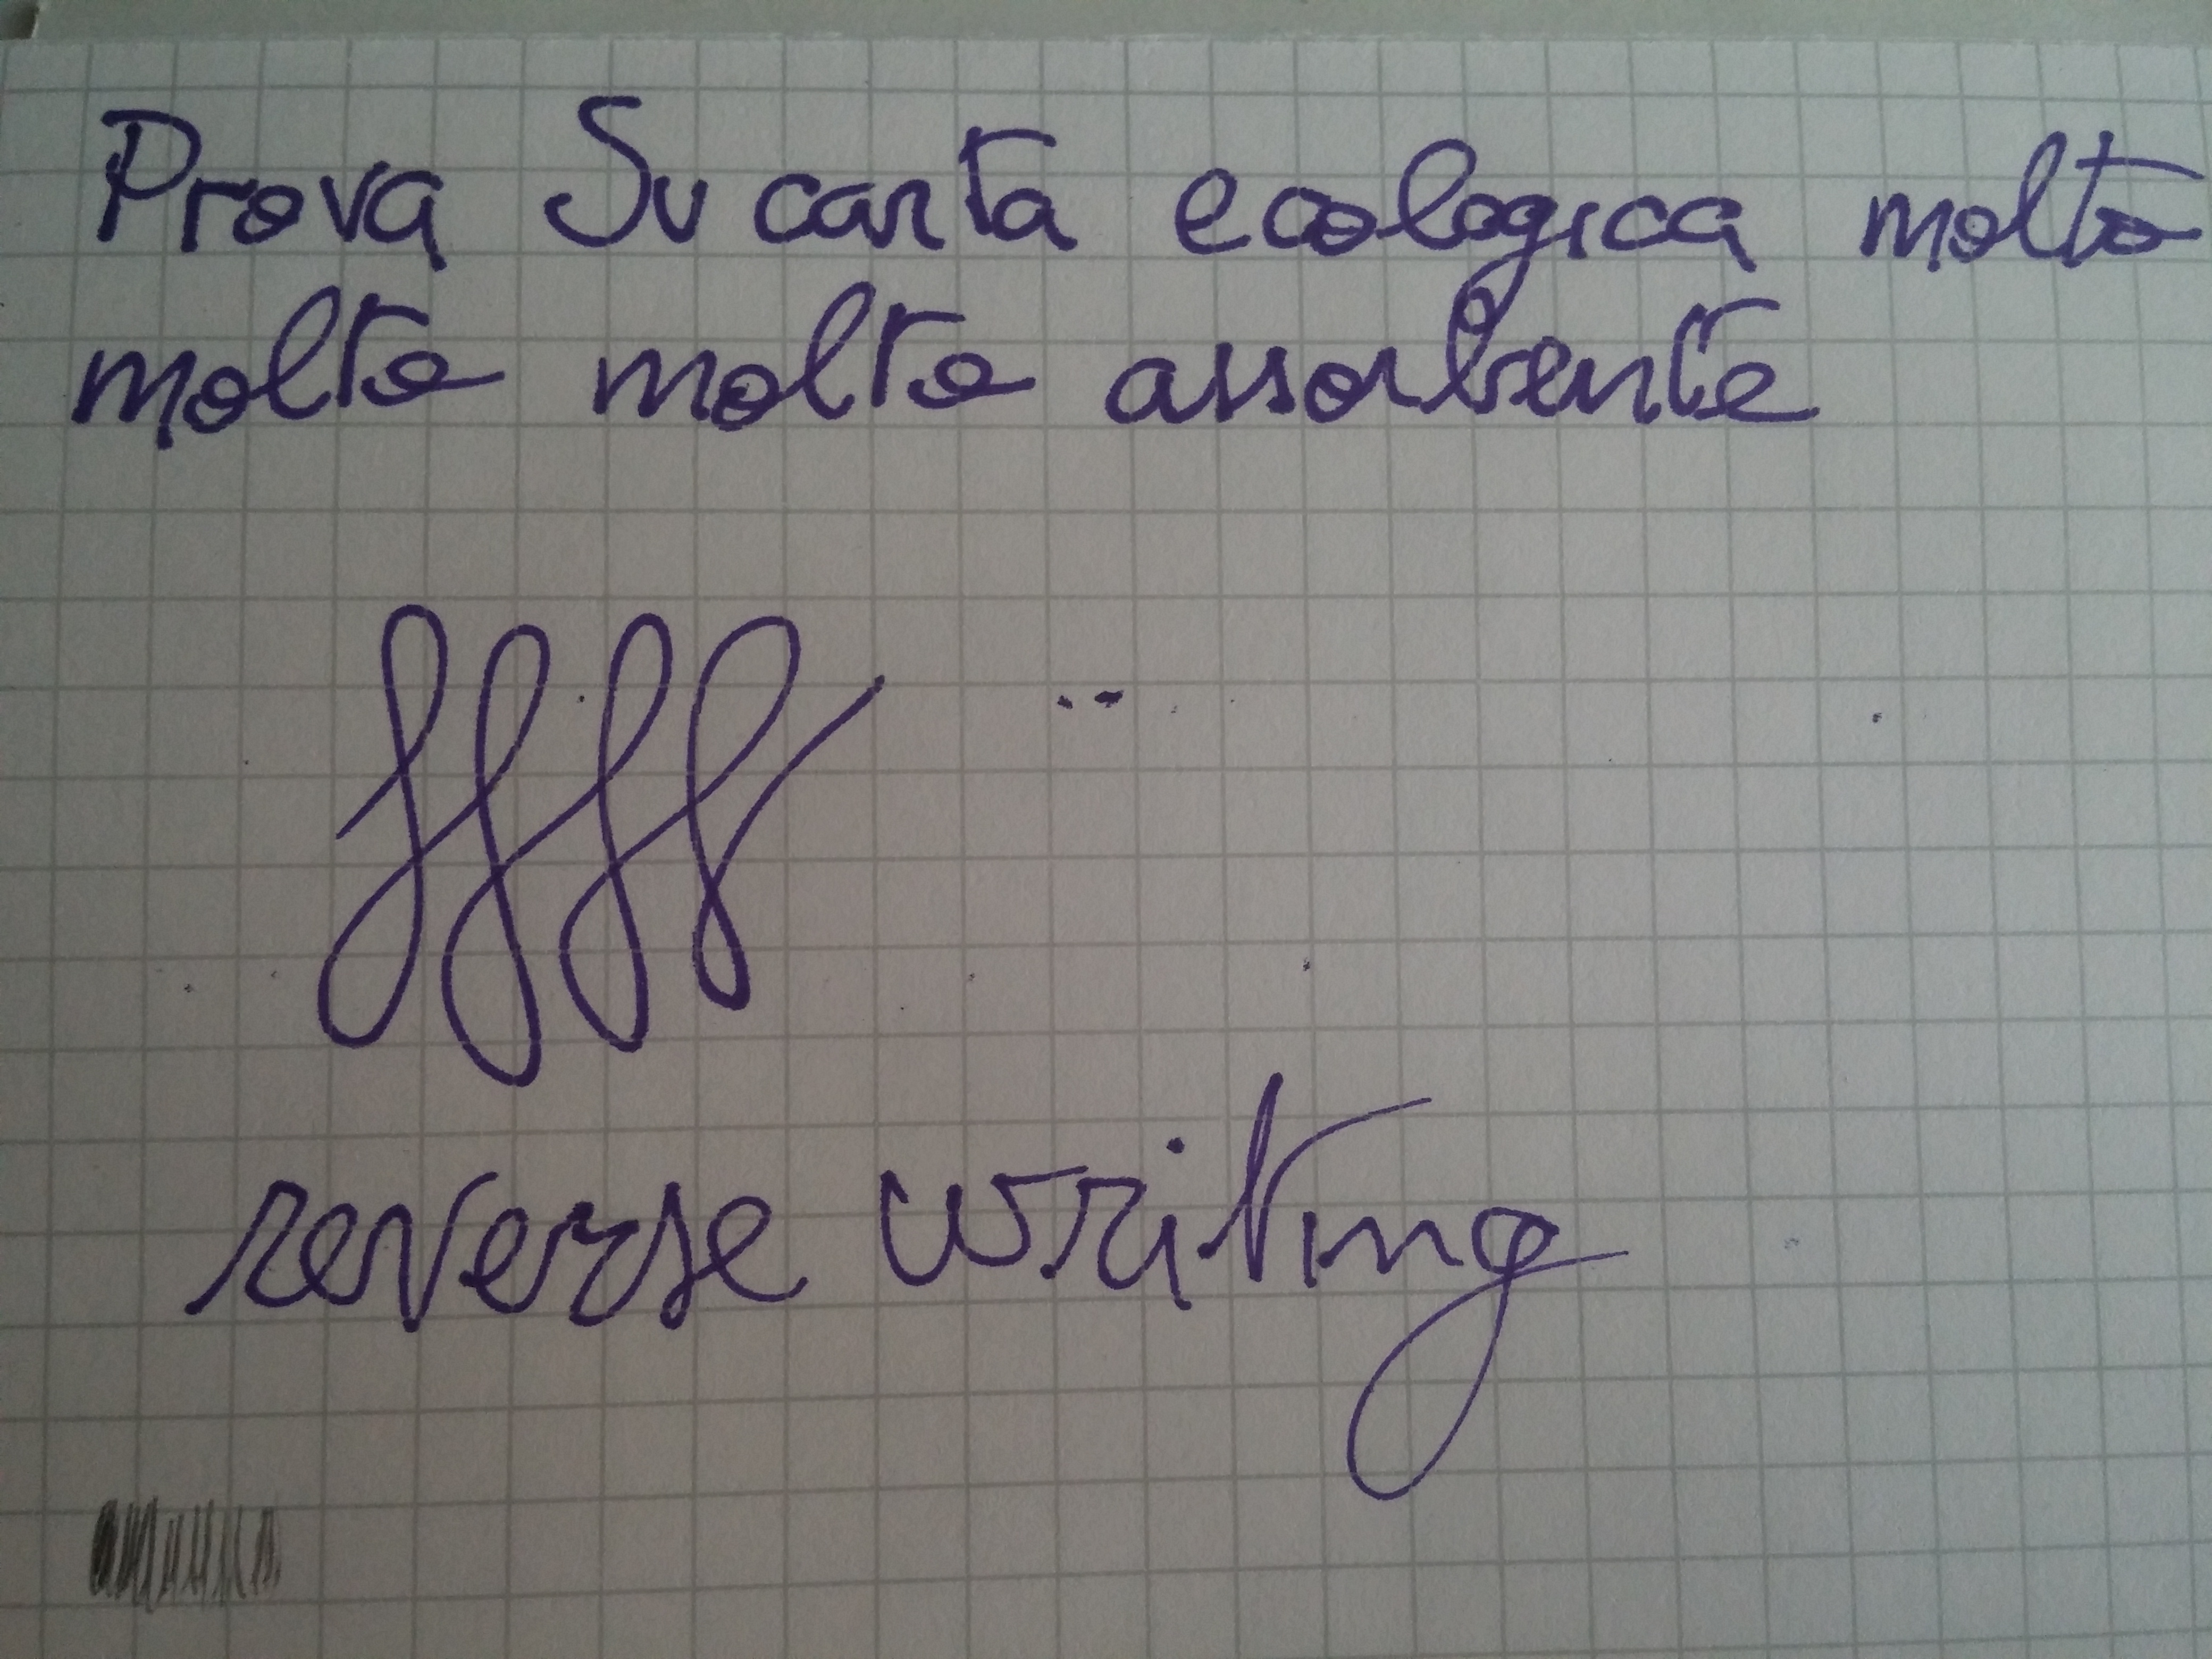 Prova Su carta ecologica molto
molto molto assorbente
ffff
reverse writing